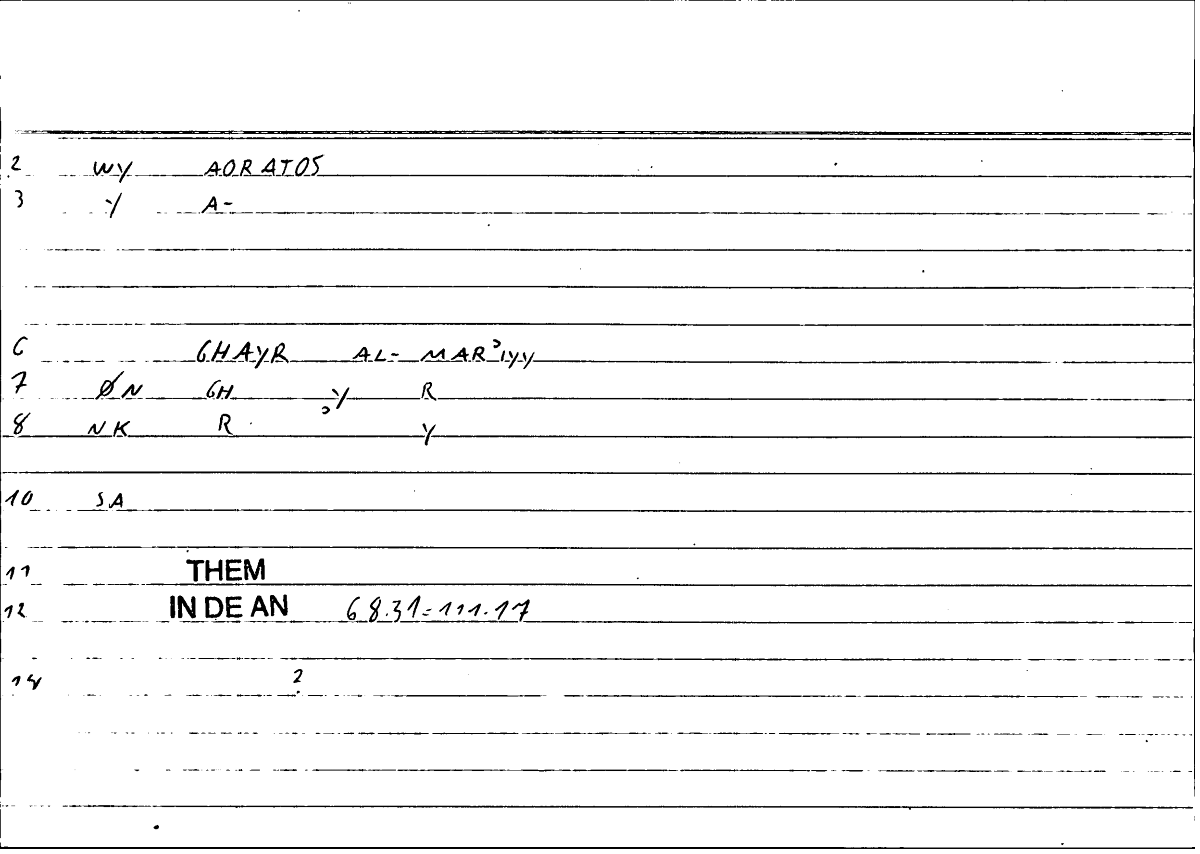 2 WY AORATOS
3 Y A-
6 GHAYR AL- MARʾIYY
7 ØN GH ʾY R
8 NK R Y
10 SA
11 THEM
12 IN DE AN 68.31=111.17
14 2